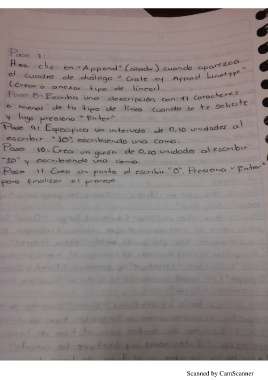 Paso 7:
Haz clic en "Append" (anade) cuando aparezca
el cuadro de diálogo "Crate ey Appad Linetype"
(crear o anexar tipo de linea).
Paso 8: Escriba una descripción con 47 caracteres
o menos de tu tipo de linea cuando se te solicite
y luego presiona "Enter"
Paso 9: Especifica un intervalo de 0.10 unidades al
escribir "10" escribiendo una coma.
Paso 10. Crea un guion de 0.20 unidades al escribir
"20" y escribiendo una coma.
Paso 11: Crea un punto al escribir "0". Presiona "Enter"
para finalizar el proceso
Scanned by CamScanner